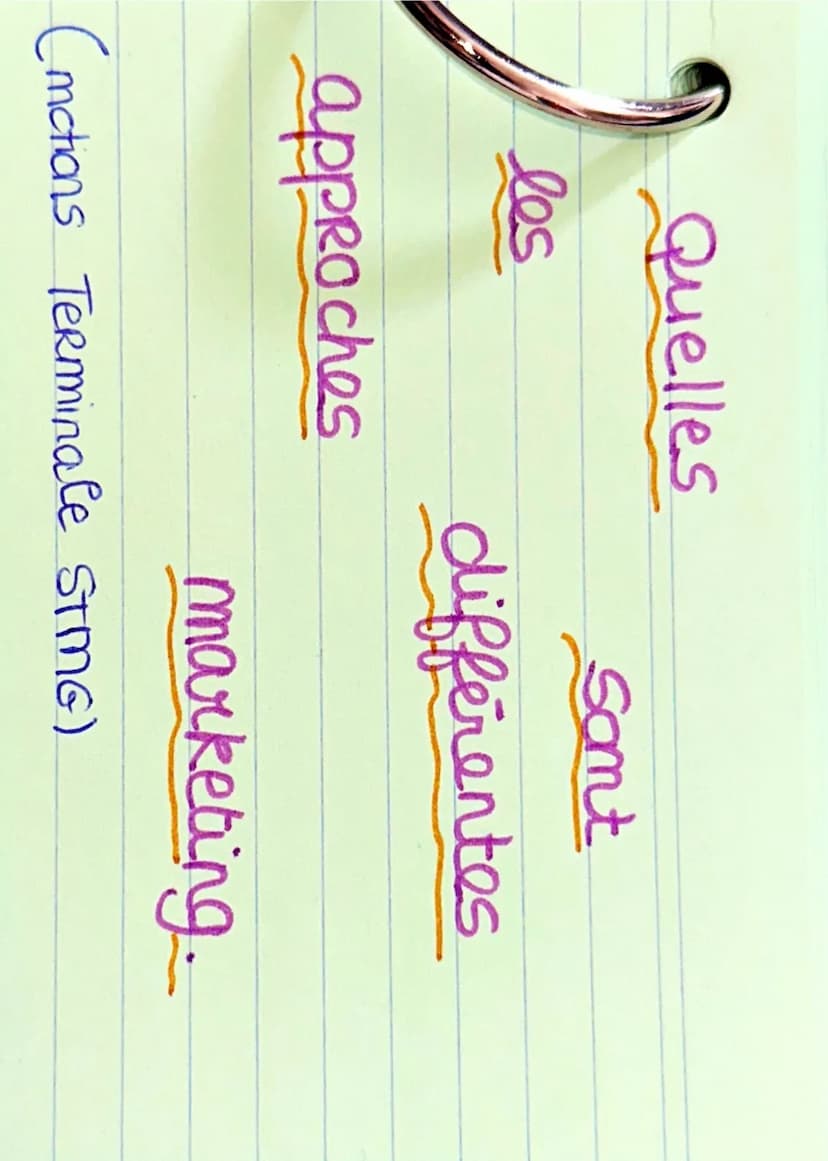 Quelles
sont
les
différentes
approches
marketing.
(notions Terminale STMG)